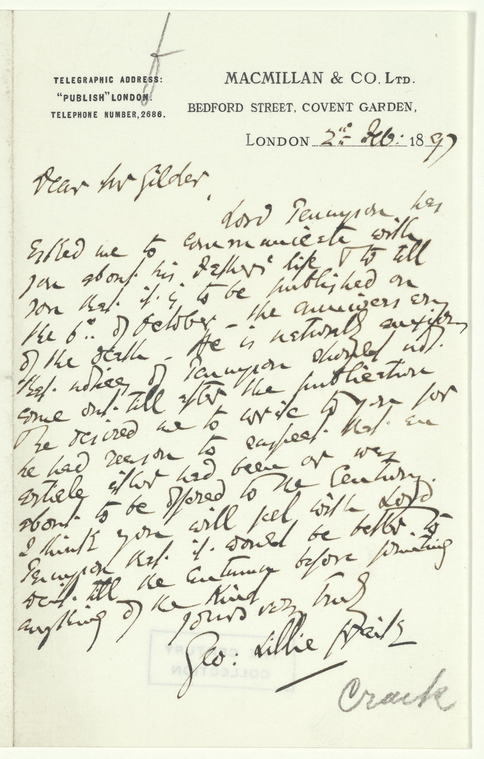 TELEGRAPHIC ADDRESS:
"PUBLISH" LONDON.
TELEPHONE NUMBER, 2686.
MACMILLAN & CO. LTD.
BEDFORD STREET, COVENT GARDEN,
LONDON 2nd Feb: 1897
Dear Mr Gilder,
Lord Tennyson has
asked me to communicate with
you about his Father's life & to tell
you that it is to be published on
the 6th. of October - the anniversary
of the death - He is naturally anxious
that notices of Tennyson should not
come out till after the publication
& he desired me to write to you for
he had reason to suspect that an
article either had been or was
about to be offered to the Century.
I think you will feel with Lord
Tennyson that it would be better to
wait till the Autumn before printing
anything of the kind
yours very truly
Geo: Lillie Craik
Craik
THE CENTURY
COLLECTION